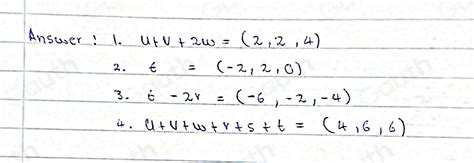 Answer : 1. u+v+2w = (2,2,4)
2. t = (-2,2,0)
3. t -2r = (-6,-2,-4)
4. u+v+w+r+s+t = (4,6,6)